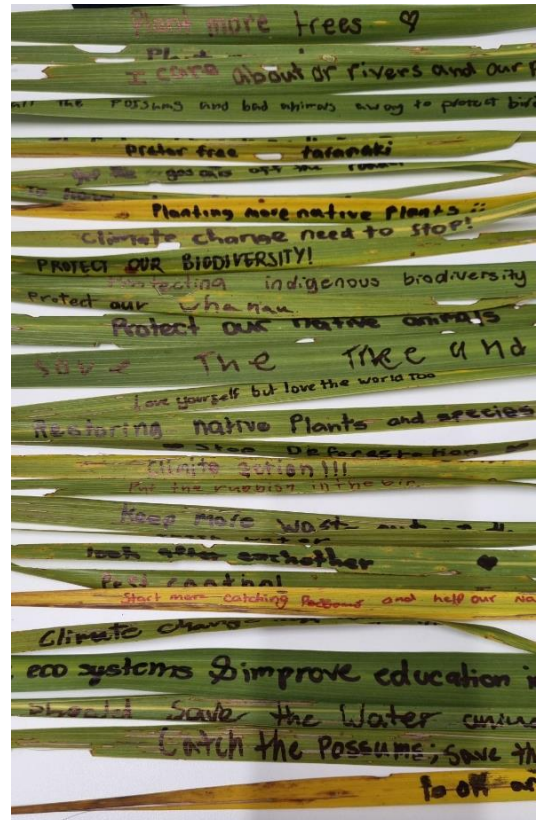 Plant more trees
Plant
I care about or rivers and our
the Possums and bad animals away to protect
Preter free taranaki
the gas off the
Planting more native Plants
Climate change need to Stop!
PROTECT OUR BIODIVERSITY!
Protecting indigenous biodiversity
Protect our whanau
Protect our native animals
Save The Tree and
Love yourself but love the world too
Restoring native Plants and species
Stop Deforestation
Climite action!!!
Put the rubbish in the bin.
Keep More Wast
water
look after eachother
Pest control
Start more catching Possums and help our
Climate change
eco systems & improve education
Should Save the Water
Catch the Possums; Save